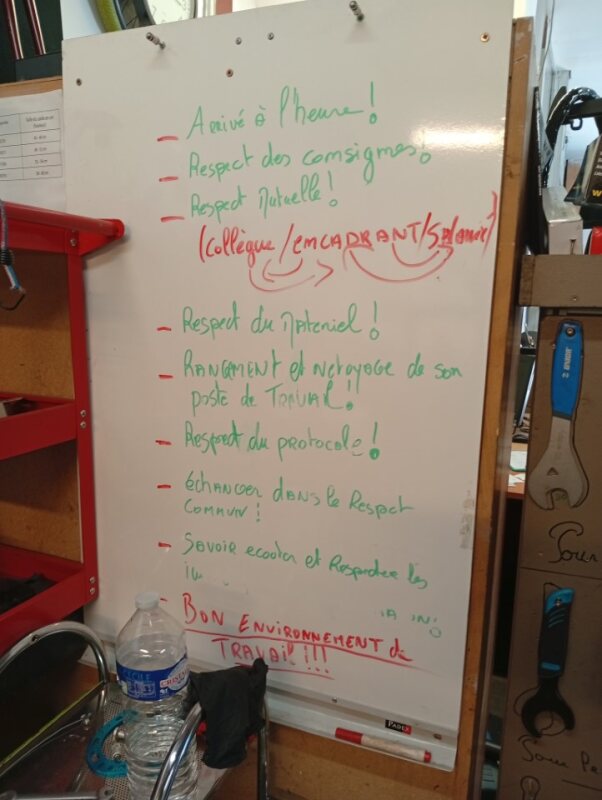 - Arrivé à l'heure !
- Respect des consignes !
- Respect Mutuelle !
(collègue / EMCADRANT / Salarié)
- Respect du Materiel !
- RANGMENT et NeTOYAGE de son
poste de TRAVAIL !
- Respect du PROTOCOLE !
- ÉCHANGER DANS le Respect
COMMUN !
- SAVOIR ecouter et Respecter les
- BON ENVIRONNEMENT de
TRAVAIL !!!
CRISTALINE
PADEX
Pour
Pour Pe